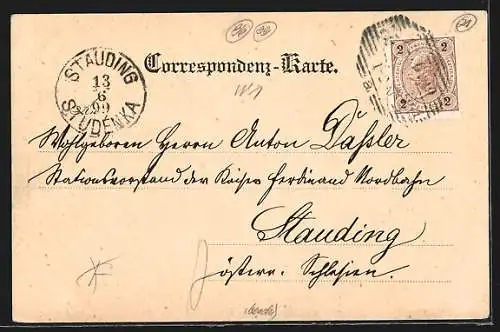 96 98
21
STAUDING
13
6
99
STUDENKA
Correspondenz-Karte.
2 2
2 2
Wohlgeboren Herrn Anton Daßler
Stationsvorstand der Kaiser Ferdinand Nordbahn
Stauding
österr. Schlesien.